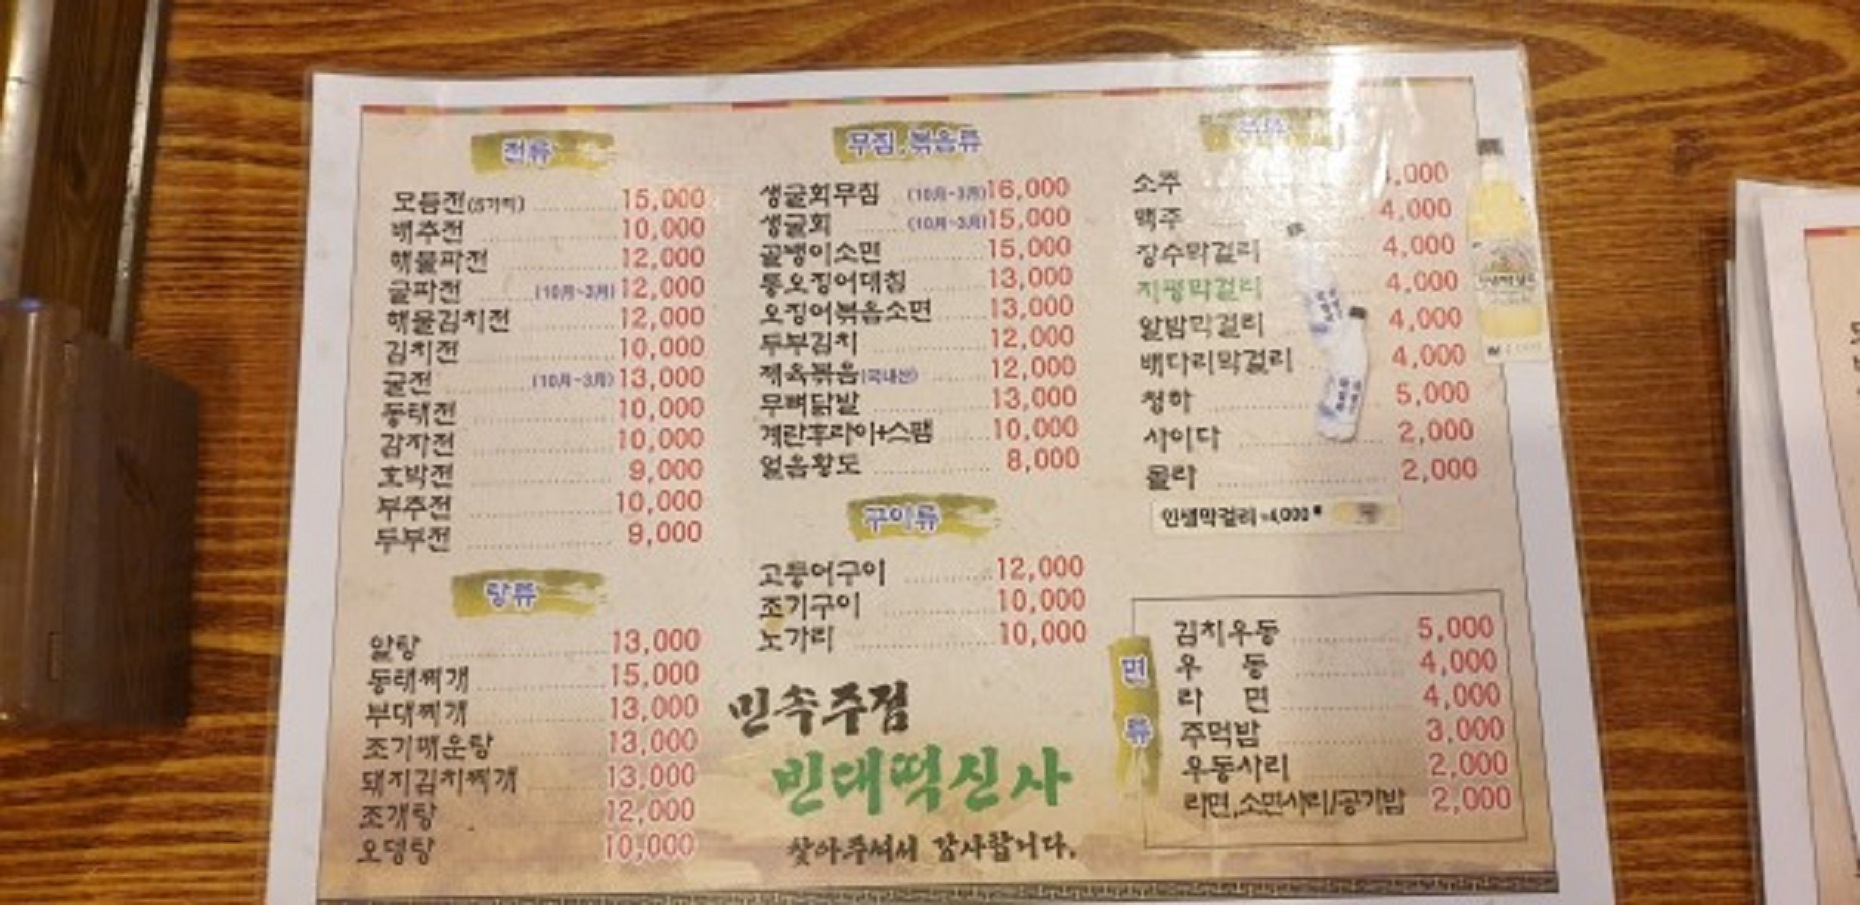 전류
모듬전(5가지) 15,000
배추전 10,000
해물파전 12,000
굴파전 (10月~3月) 12,000
해물김치전 12,000
김치전 10,000
굴전 (10月~3月) 13,000
동태전 10,000
감자전 10,000
호박전 9,000
부추전 10,000
두부전 9,000
탕류
알탕 13,000
동태찌개 15,000
부대찌개 13,000
조기매운탕 13,000
돼지김치찌개 13,000
조개탕 12,000
오뎅탕 10,000
무침,볶음류
생굴회무침 (10月~3月) 16,000
생굴회 (10月~3月) 15,000
골뱅이소면 15,000
통오징어데침 13,000
오징어볶음소면 13,000
두부김치 12,000
제육볶음(국내산) 12,000
무뼈닭발 13,000
계란후라이+스팸 10,000
얼음황도 8,000
구이류
고등어구이 12,000
조기구이 10,000
노가리 10,000
민속주점
빈대떡신사
찾아주셔서 감사합니다.
소주
맥주 4,000
장수막걸리 4,000
지평막걸리 4,000
알밤막걸리 4,000
배다리막걸리 4,000
청하 5,000
사이다 2,000
콜라 2,000
인생막걸리 4,000
면류
김치우동 5,000
우 동 4,000
라 면 4,000
주먹밥 3,000
우동사리 2,000
라면,소면사리/공기밥 2,000